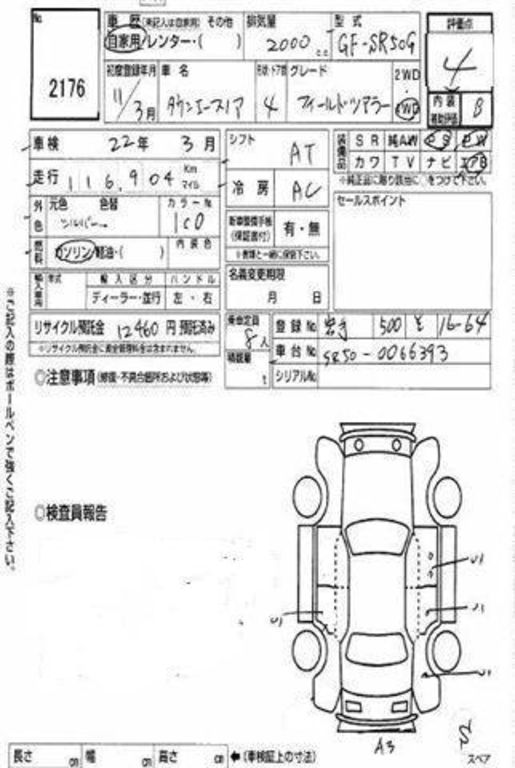 No.
2176
車歴 (未記入は自家用) その他
自家用/レンター・( )
排気量
2000 c.c
型式
GF-SR50G
評価点
4
内装
補助評価
B
初度登録年月
11/3月
車名
タウンエースノア
形状・ドア数
4
グレード
フィールドツアラー
2WD
4WD
車検 22年 3月
シフト AT
装備品
SR 純AW PS PW
カワ TV ナビ エアB
※純正品に限り該当に○をつけて下さい。
走行 116,904 Km
マイル
冷房 AC
セールスポイント
外色
元色 色替
シルバー
カラーNo
1C0
新車整備手帳
(保証書付)
有・無
※書類と一緒に保管下さい。
燃料
ガソリン/軽油・( )
内装色
輸入車用
年式
輸入区分
ディーラー・並行
ハンドル
左・右
名義変更期限
月 日
リサイクル預託金 12460 円 預託済み
※リサイクル預託金に資金管理料金は含まれません。
乗車定員
8人
積載量
t
登録No 岩手 500 そ 16-64
車台No SR50-0066393
シリアルNo
◎注意事項 (修復・不具合箇所および状態等)
※ご記入の際はボールペンで強くご記入下さい。
◎検査員報告
U1
U1
U1
U1
A3
スペア
長さ cm 幅 cm 高さ cm ←(車検証上の寸法)